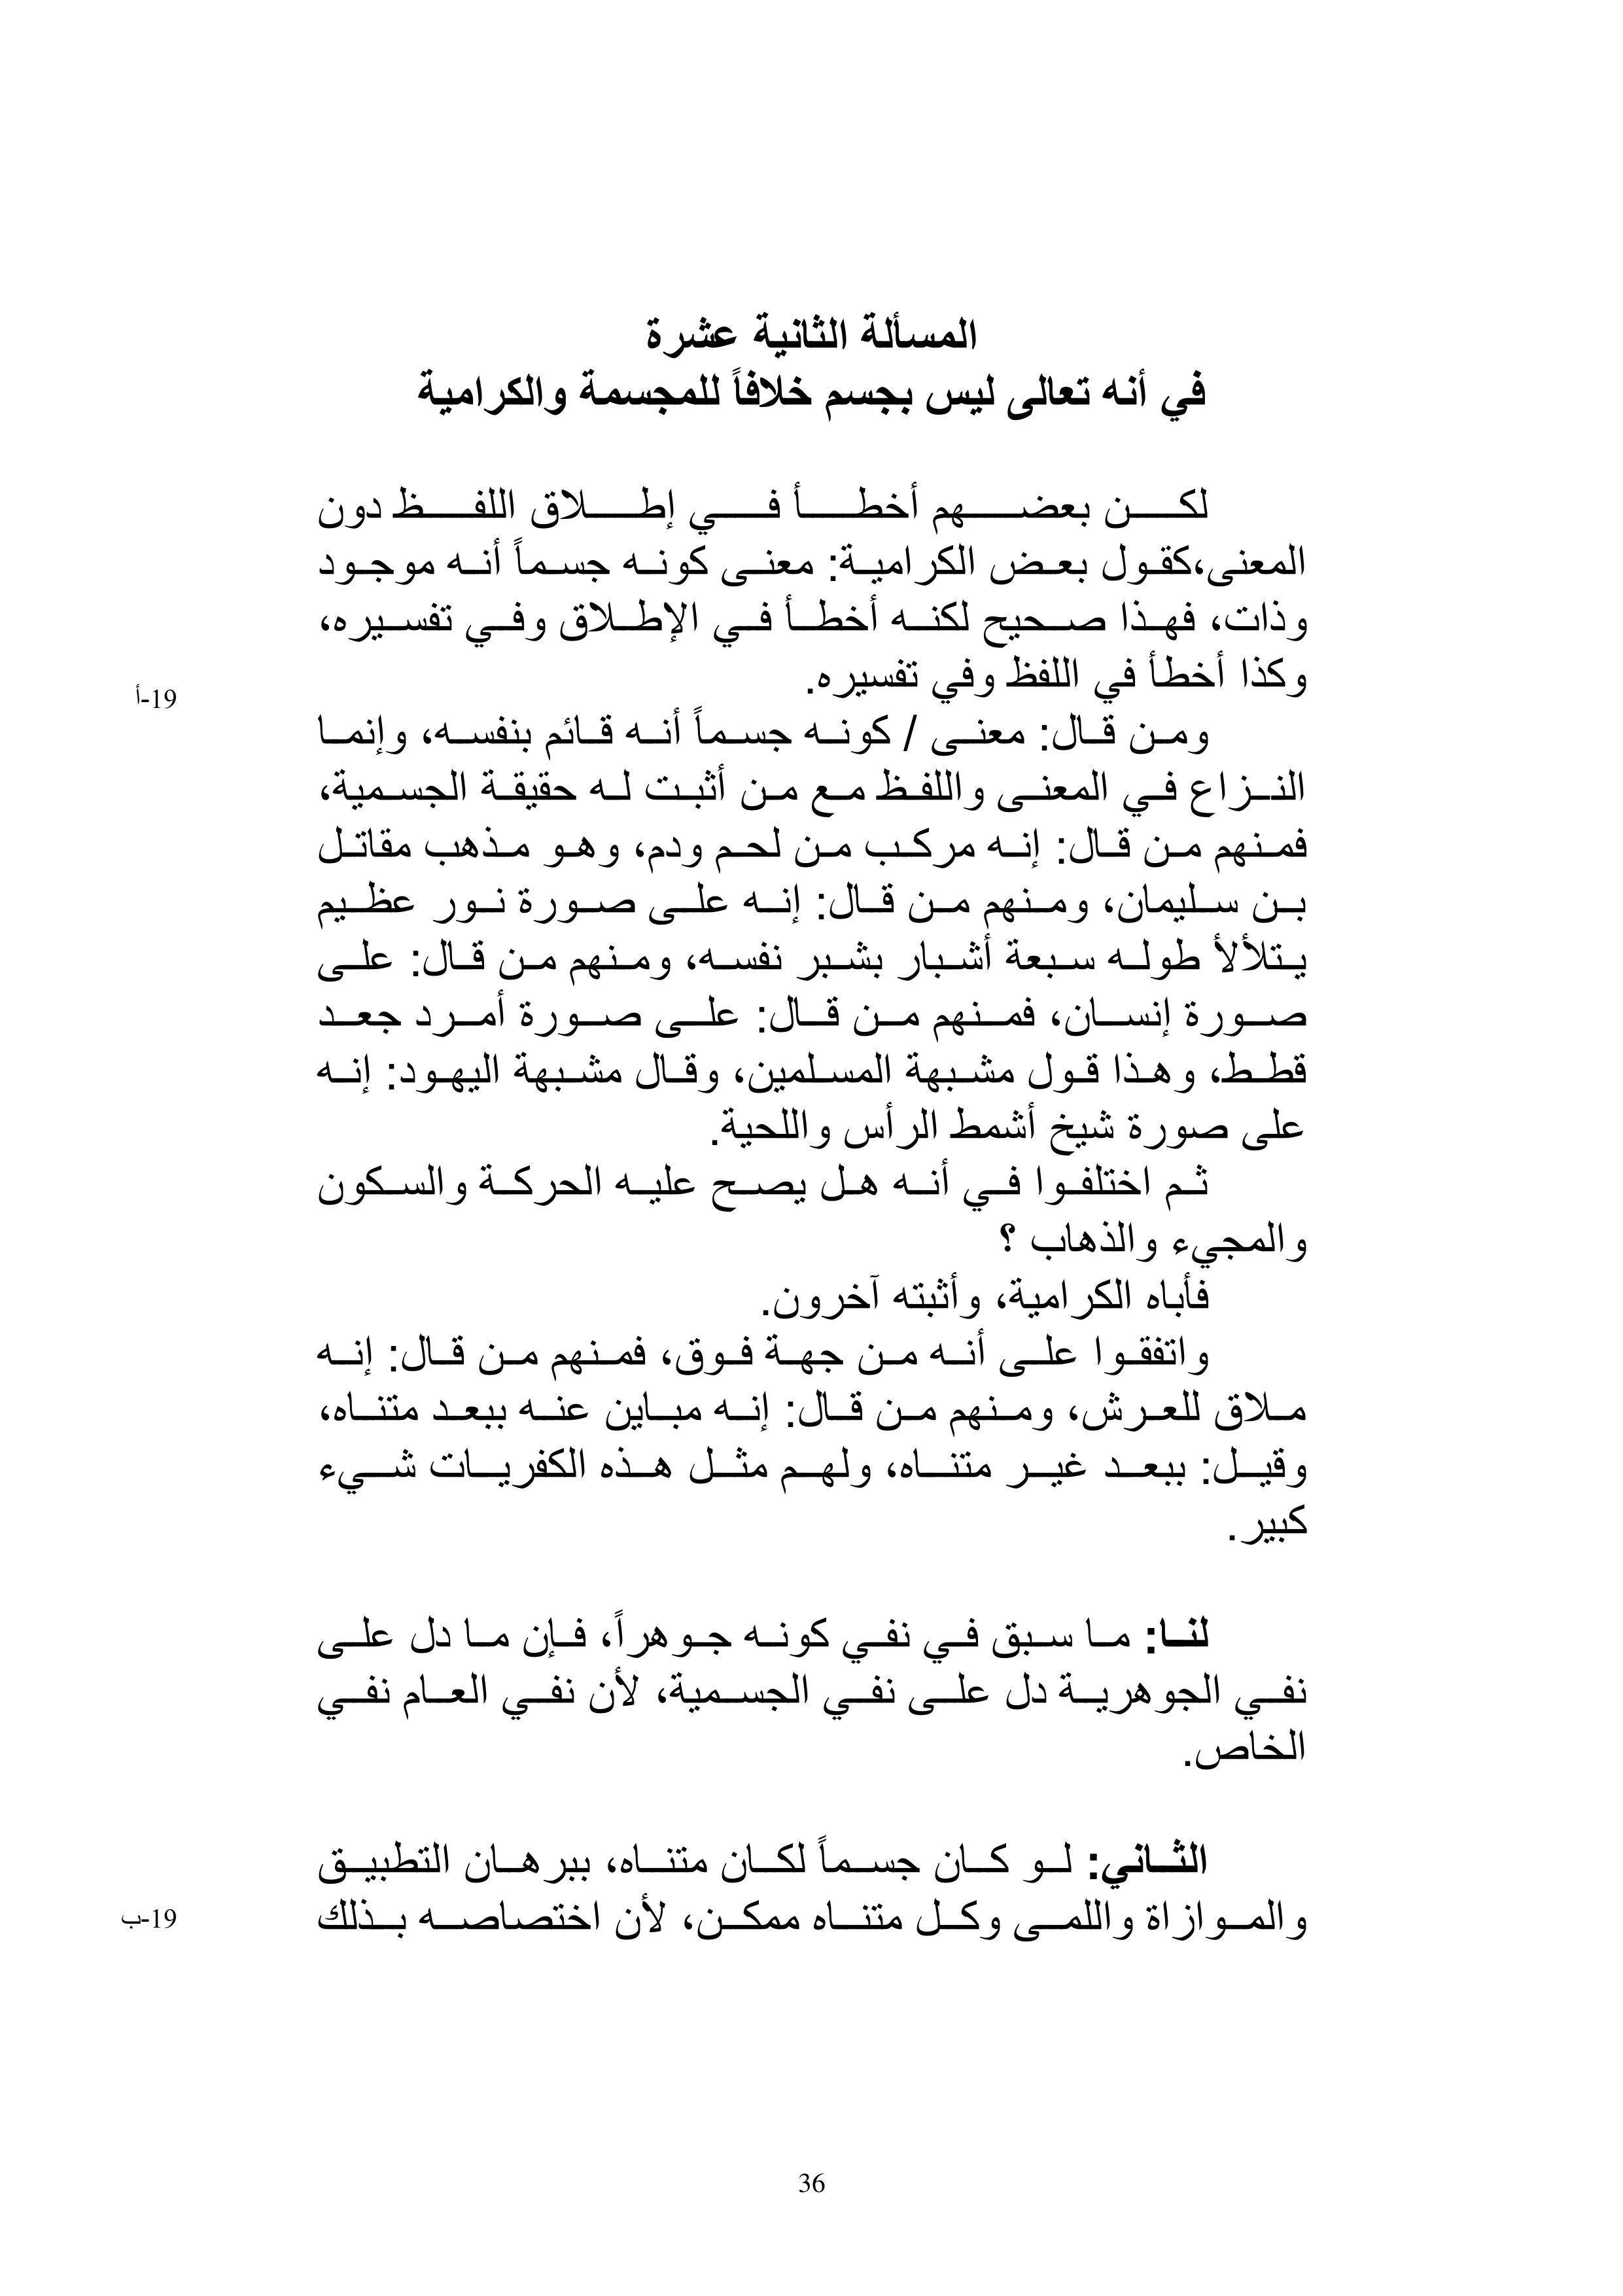 المسألة الثانية عشرة
في أنه تعالى ليس بجسم خلافاً للمجسمة والكرامية
لكن بعضهم أخطأ في إطلاق اللفظ دون
المعنى،كقول بعض الكرامية: معنى كونه جسماً أنه موجود
وذات، فهذا صحيح لكنه أخطأ في الإطلاق وفي تفسيره،
وكذا أخطأ في اللفظ وفي تفسيره.
19-أ
ومن قال: معنى / كونه جسماً أنه قائم بنفسه، وإنما
النزاع في المعنى واللفظ مع من أثبت له حقيقة الجسمية،
فمنهم من قال: إنه مركب من لحم ودم، وهو مذهب مقاتل
بن سليمان، ومنهم من قال: إنه على صورة نور عظيم
يتلألأ طوله سبعة أشبار بشبر نفسه، ومنهم من قال: على
صورة إنسان، فمنهم من قال: على صورة أمرد جعد
قطط، وهذا قول مشبهة المسلمين، وقال مشبهة اليهود: إنه
على صورة شيخ أشمط الرأس واللحية.
ثم اختلفوا في أنه هل يصح عليه الحركة والسكون
والمجيء والذهاب ؟
فأباه الكرامية، وأثبته آخرون.
واتفقوا على أنه من جهة فوق، فمنهم من قال: إنه
ملاق للعرش، ومنهم من قال: إنه مباين عنه ببعد متناه،
وقيل: ببعد غير متناه، ولهم مثل هذه الكفريات شيء
كبير.
لنا: ما سبق في نفي كونه جوهراً، فإن ما دل على
نفي الجوهرية دل على نفي الجسمية، لأن نفي العام نفي
الخاص.
الثاني: لو كان جسماً لكان متناه، ببرهان التطبيق
والموازاة واللمى وكل متناه ممكن، لأن اختصاصه بذلك
19-ب
36